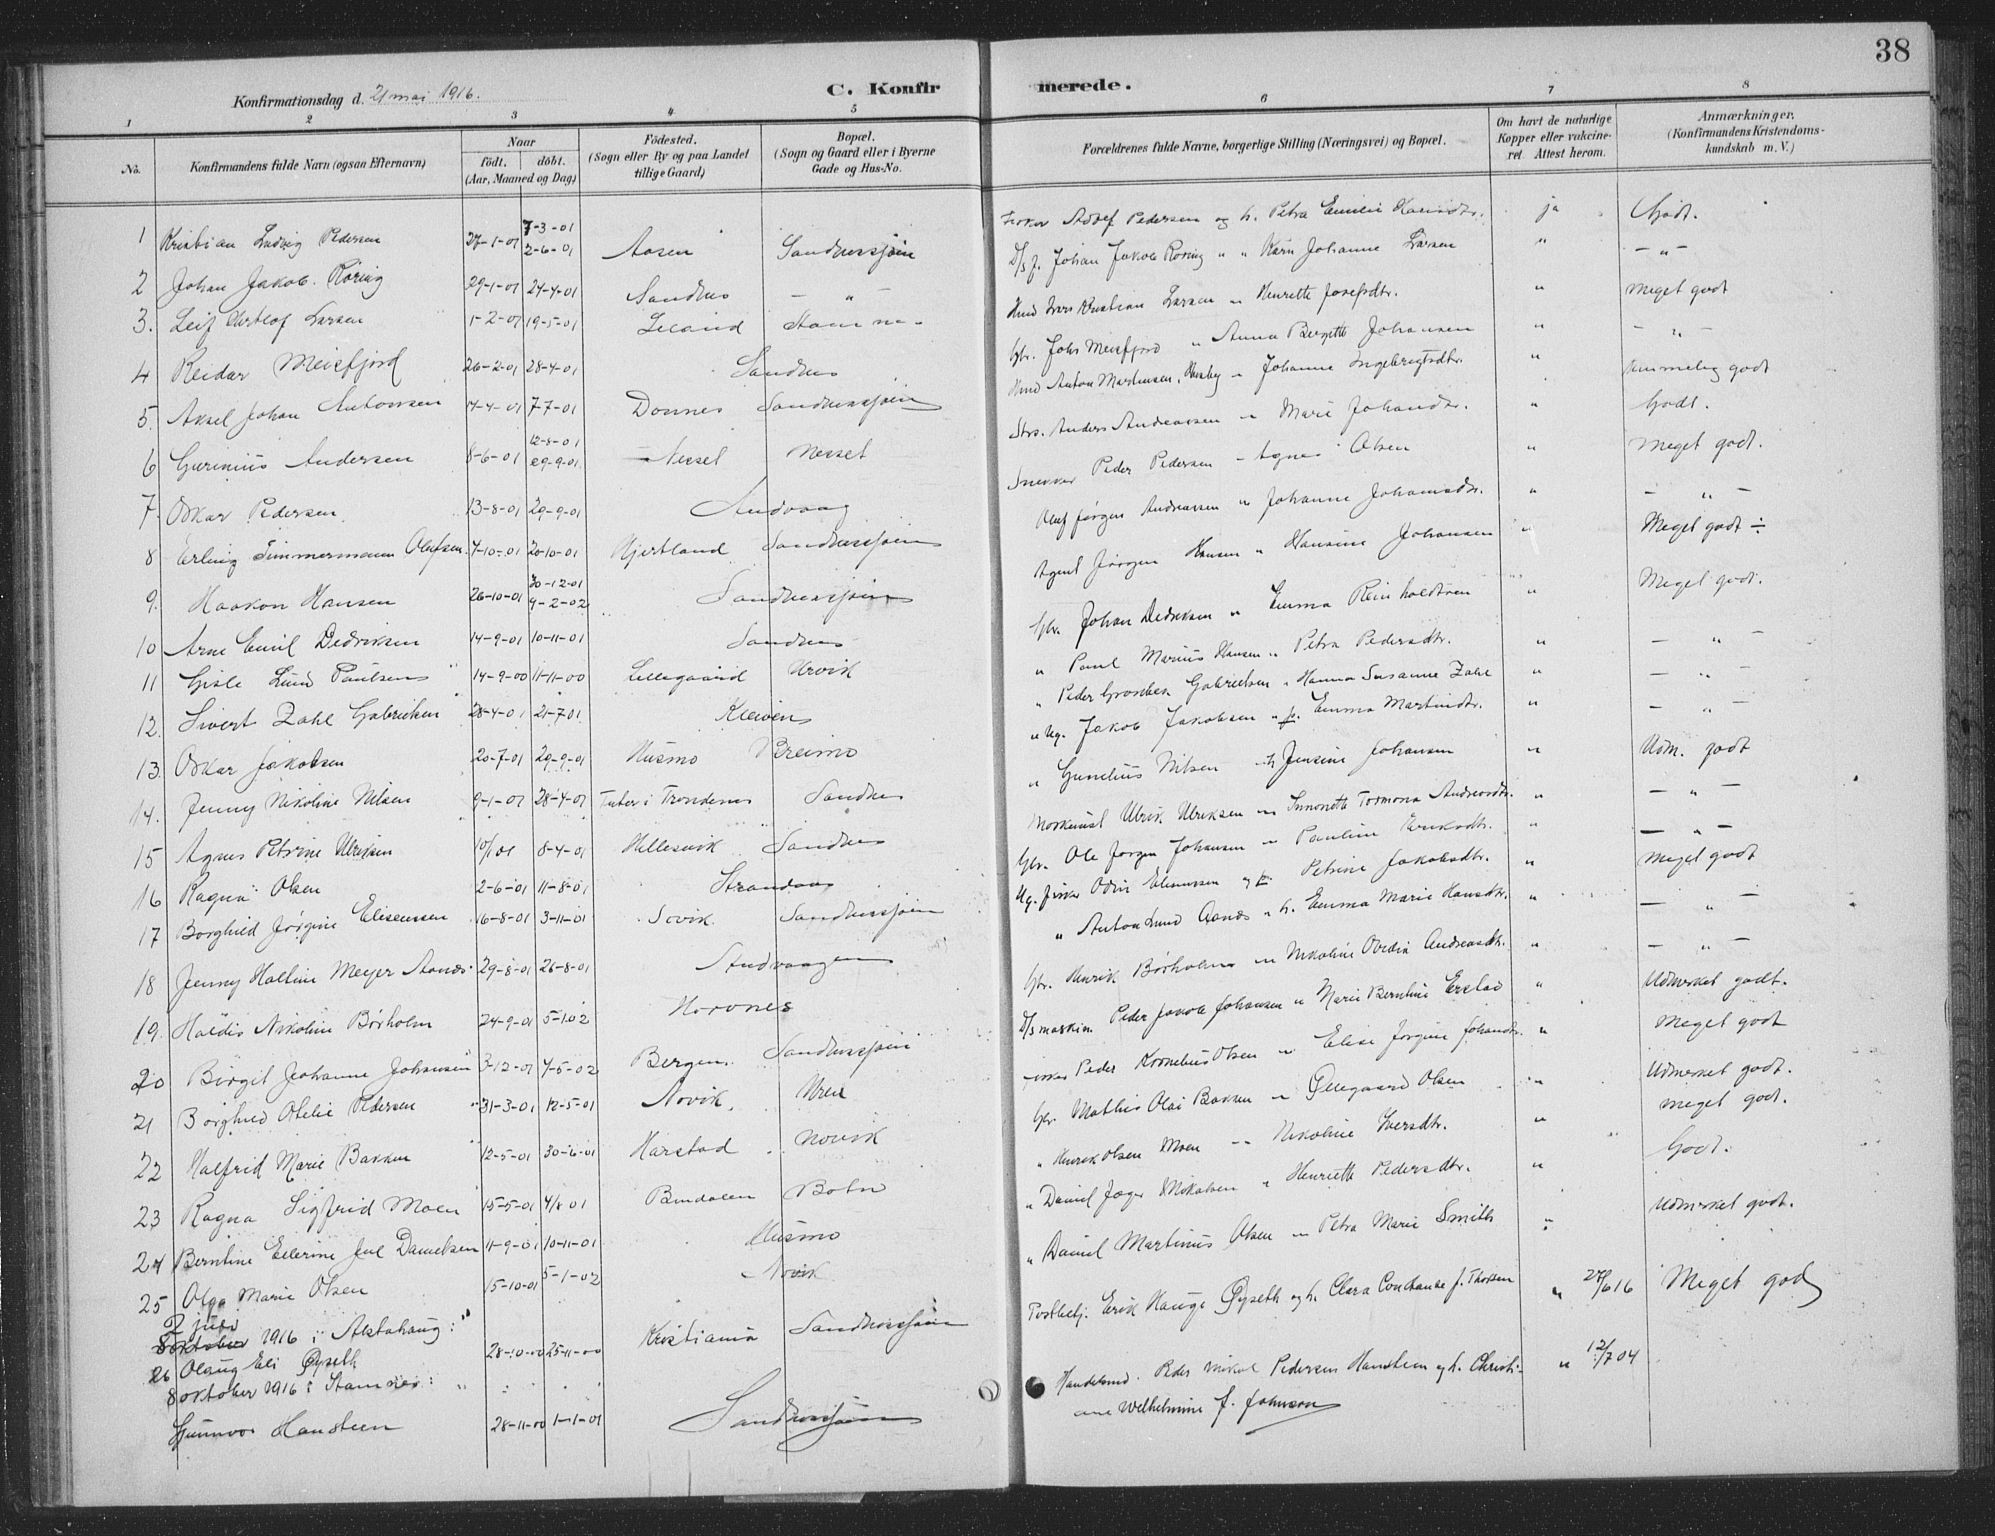 38
Konfirmationsdag d. 21 mai 1916. C. Konfirmerede.
1 2 3 4 5 6 7 8
No. Konfirmandens fulde Navn (ogsaa Efternavn) Naar født. døbt. (Aar, Maaned og Dag) Fødested. (Sogn eller By og paa Landet tillige Gaard) Bopæl. (Sogn og Gaard eller i Byerne Gade og Hus-No. Forældrenes fulde Navne, borgerlige Stilling (Næringsvei) og Bopæl. Om havt de naturlige Kopper eller vakcineret. Attest herom. Anmærkninger. (Konfirmandens Kristendomskundskab m. V.)
1 Kristian Ludvig Pedersen 27-1-01 7-3-01 2-6-01 Aasen Sandnessjøen Adolf Pedersen og h. Petra Emilie ja Godt.
2 Johan Jakob Røring 29-1-01 24-4-01 Sandnes — " — D/s f. Johan Jakob Røring " " Karn Johanne Larsen " — " —
3. Leif Larsen 1-2-01 19-5-01 Leland Kristian Larsen " Henrette Josefsdtr. " Meget godt
4 Reidar Meisfjord 26-2-01 28-4-01 Sandnes Gbr. Johs Meisfjord " Anna Bergette Johansen " — " —
5. Aksel Johan Antonsen 14-4-01 7-7-01 Dønnes Sandnessjøen Anton Martinsen, Husby " Johanne Ingebrigtsdtr. " godt
6 Andersen 8-6-01 12-8-01 29-9-01 Nesset Nesset Anders Andreassen " Marie Johansdtr. " Godt.
7. Oskar Pedersen 13-8-01 29-9-01 Sandvaag Snekker Peder Pedersen " Agnes Olsen " Meget godt.
8 Erling Timmermann Olufsen 7-10-01 20-10-01 Hjertland Sandnessjøen Oluf Jørgen Andreassen " Johanne Johansdtr. " — " —
9. Haakon Hansen 26-10-01 30-12-01 9-2-02 Sandnessjøen Agent Jørgen Hansen " Hansine Johansen " Meget godt ÷
10 Arne Emil Dedriksen 14-9-01 10-11-01 Sandnes Gbr. Johan Dedriksen " Emma Reinholdtsen " Meget godt.
11 Gisle Lund Paulsen 14-9-00 11-11-00 Lillegaard Urvik " Paul Marius Hansen " Petra Pedersdtr. " — " —
12. Sivert Zahl Gabrielsen 28-4-01 21-7-01 Kleiven " Peder Gabrielsen " Hanna Susanne Zahl " — " —
13. Oskar Jakobsen 20-7-01 29-9-01 Husmo Breimo " Ug. Jakob Jakobsen " p. Emma Martindtr. " — " —
14. Jenny Nikoline Nilsen 9-1-01 28-4-01 i Trondenes Sandnes " Nilsen h Jensine Johansen " Udm. godt
15 Agnes Petrine Ulriksen 10/1 01 8-4-01 Hellesvik Sandnes Ulrik Ulriksen " Andreasdtr. " — " —
16 Ragna Olsen 2-6-01 11-8-01 Strandaas Gbr. Ole Jørgen Johansen " Pauline Eriksdtr. " — " —
17 Borghild Jørgine Eliseussen 16-8-01 3-11-01 Sovik Sandnessjøen Ug. fisker Odin Eliseussen og Petrine Jakobsdtr. " Meget godt
18 Jenny Haltine Meyer Aanes 29-3-01 26-8-01 Sandvaagen " Anton Lund Aanes " h. Emma Marie Hansdtr. " — " —
19. Haldis Nikoline Børholm 24-9-01 5-1 02 Horvnes Gbr. Henrik Børholm " Nikoline Ovedia Andreasdtr. " — " —
20 Birgit Johanne Johansen 3-12-01 4-5-02 Bergen. Sandnessjøen D/s maskin. Peder Jakob Johansen " Marie Berntine Erstad " Udmerket godt.
21 Borghild Otelie Pedersen 31-3-01 12-5-01 Novik. Uren Peder Kornelius Olsen " Elise Jørgine Johansdtr. " Meget godt
22 Halfrid Marie Bakken 12-5-01 30-6-01 Harstad Novik Gbr. Mathis Olai Bakken " Ovegaard Olsen " Udmerket godt.
23 Ragna Sigfrid Moen 15-5-01 4/8 01 Bindalen Botn " Henrik Olsen Moen " Nikoline Iversdtr. " Meget godt.
24 Berntine Ellerine Jul Danielsen 11-9-01 10-11-01 Husmo " Daniel Jæger Mikalsen " Henriette Pedersdtr. " Godt.
25 Olga Marie Olsen 15-10-01 5-1-02 Novik " Daniel Martinus Olsen " Petra Marie Smith " Udmerket godt.
2 juli
8 oktober 1916 i Alstahaug:
26 Olaug Eli Øyseth 28-10-00 25-11-00 Kristiania Sandnessjøen Postbetj. Erik Hauge Øyseth og h. Clara Constanse f. Thorsen " 27/6 16 Meget godt
8 oktober 1916 i Stamnes:
Gunnvor Hansteen 28-11-00 1-1-01 Sandnessjøen Handelsmd. Peder Mikal Pedersen Hansteen og h. Christiane Wilhelmine f. Johnson " 12/7 04